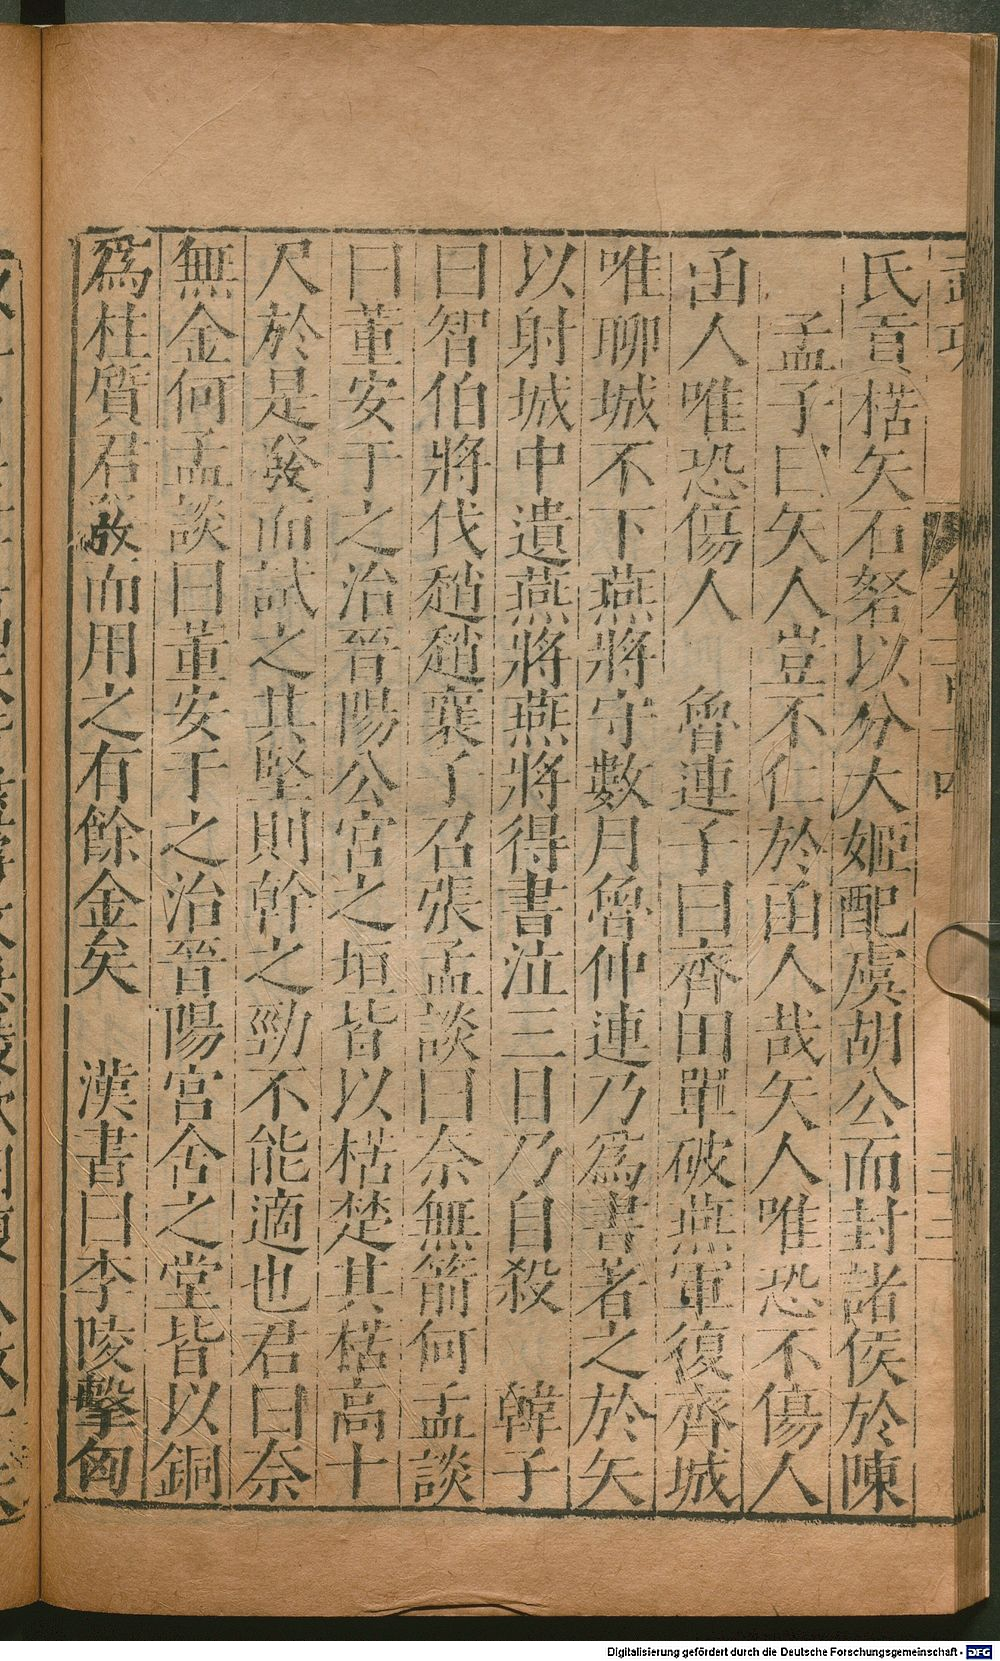 氏貢楛矢石砮以分大姬配虞胡公而封諸侯於陳
孟子曰矢人豈不仁於函人哉矢人唯恐不傷人
函人唯恐傷人 魯連子曰齊田單破燕軍復齊城
唯聊城不下燕將守數月魯仲連乃爲書著之於矢
以射城中遺燕將燕將得書泣三日乃自殺 韓子
曰智伯將伐趙趙襄子召張孟談曰奈無箭何孟談
曰董安于之治晉陽公宮之垣皆以楛楚其楛高十
尺於是發而試之其堅則幹之勁不能適也君曰奈
無金何孟談曰董安于之治晉陽宮舍之堂皆以銅
爲柱質君發而用之有餘金矣 漢書曰李陵擊匈
Digitalisierung gefördert durch die Deutsche Forschungsgemeinschaft - DFG